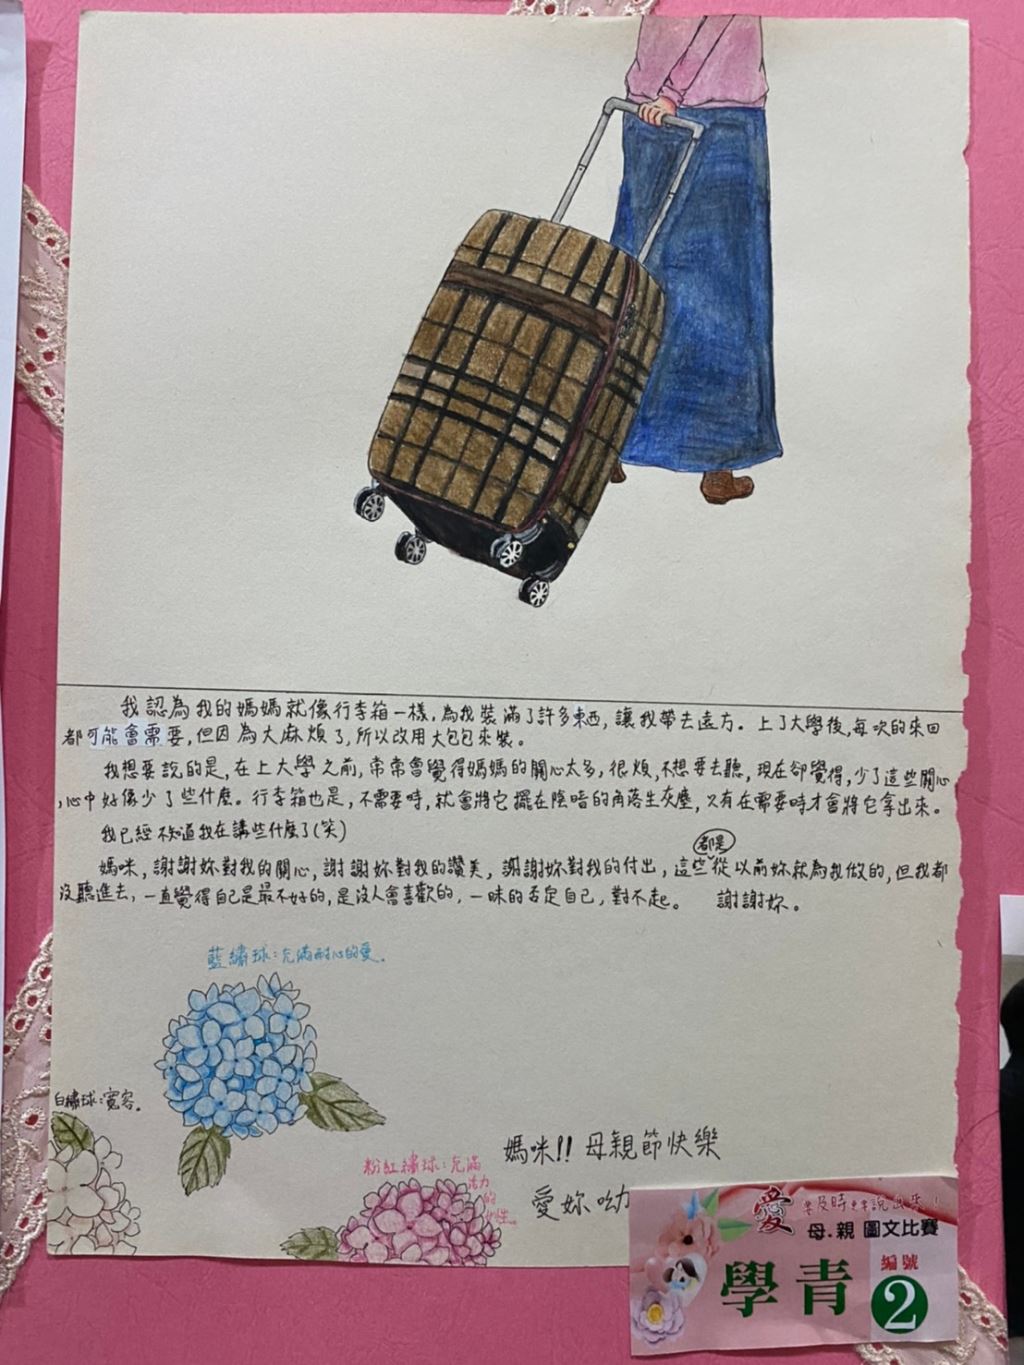 我認為我的媽媽就像行李箱一樣，為我裝滿了許多東西，讓我帶去遠方。上了大學後，每次的來回
都可能會需要，但因為太麻煩了，所以改用大包包來裝。
我想要說的是，在上大學之前，常常會覺得媽媽的關心太多，很煩，不想要去聽，現在卻覺得，少了這些關心
，心中好像少了些什麼。行李箱也是，不需要時，就會將它擺在陰暗的角落生灰塵，只有在需要時才會將它拿出來。
我已經不知道我在講些什麼了(笑)
都是
媽咪，謝謝妳對我的關心，謝謝妳對我的讚美，謝謝妳對我的付出，這些從以前妳就為我做的，但我都
沒聽進去，一直覺得自己是最不好的，是沒人會喜歡的，一昧的否定自己，對不起。 謝謝妳。
藍繡球：充滿耐心的愛。
白繡球：寬容。
粉紅繡球：充滿
活力
的
女性。
媽咪!! 母親節快樂
愛妳呦
愛 要及時 要說出來！
母.親 圖文比賽
學青
編號
2